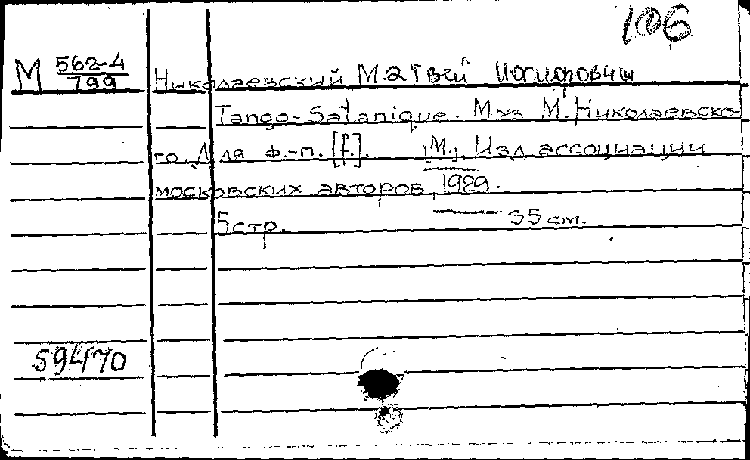 106
М 562-4/799
Николаевский Матвей Иосифович
Tango-Satanique. Муз М. Николаевско-
го. Для ф.-п. [f.]. М., Изд ассоциации
московских авторов, 1929.
5стр. 35 cm.
59470